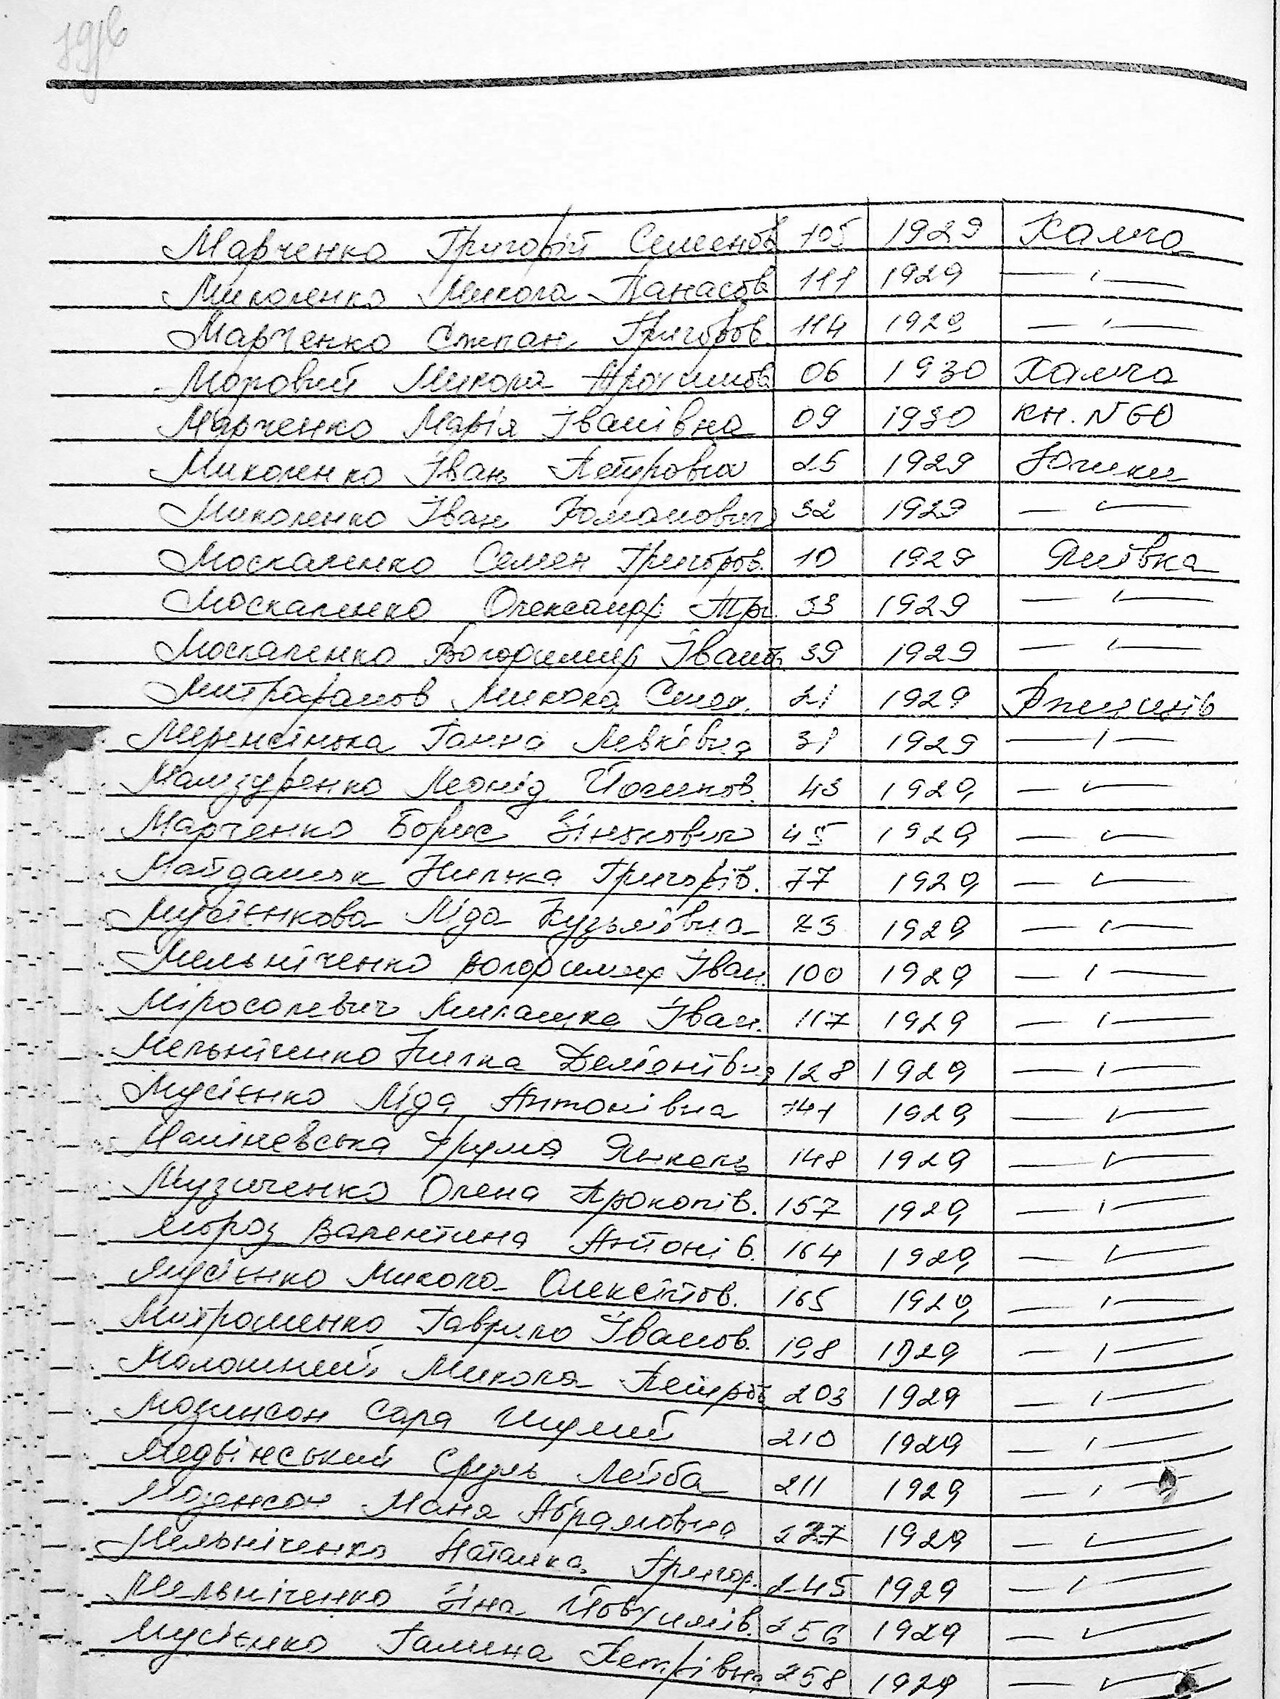 Марченко Григорій Семенов 105 1929 Халча
Миколенко Микола Панасов 111 1929 — " —
Марченко Степан Григоров. 114 1929 — " —
Моровий Микола Трохимов 06 1930 Халча
Марченко Марія Іванівна 09 1930 кн. N 60
Миколенко Іван Петрович 25 1929 Юшки
Миколенко Іван Романович 32 1929 — " —
Москаленко Семен Григоров. 10 1929 Яшівка
Москаленко Олександр Гр. 33 1929 — " —
Москаленко Володимир Іванов. 39 1929 — " —
Митрофанов Микола 21 1929 Ржищів
Ганна Левківна 31 1929 — " —
Леонід Йосипов. 43 1929 — " —
Марченко Борис Зінькович 45 1929 — " —
Майданюк Нилька Григорів. 77 1929 — " —
Мусієнкова Ліда Кузьмівна 83 1929 — " —
Мельніченко Володимир Іван. 100 1929 — " —
Міросолевич Іван. 117 1929 — " —
Мельніченко Нилка Дем'янівна 128 1929 — " —
Мусієнко Ліда Антонівна 141 1929 — " —
Фрума Янкель 148 1929 — " —
Музиченко Олена Прокопів. 157 1929 — " —
Мороз Валентина Антонів. 164 1929 — " —
Мусієнко Микола Олексійов. 165 1929 — " —
Митрошенко Гаврило Іванов. 198 1929 — " —
Микола Петров 203 1929 — " —
Мозинсон Сара 210 1929 — " —
Медвінський Сруль Лейба 211 1929 — " —
Мозенсон Маня Абрамовна 237 1929 — " —
Мельніченко Наталка Григор. 245 1929 — " —
Мельніченко Зіна Йовхимів. 256 1929 — " —
Мусієнко Галина Петрівна 258 1929 — " —